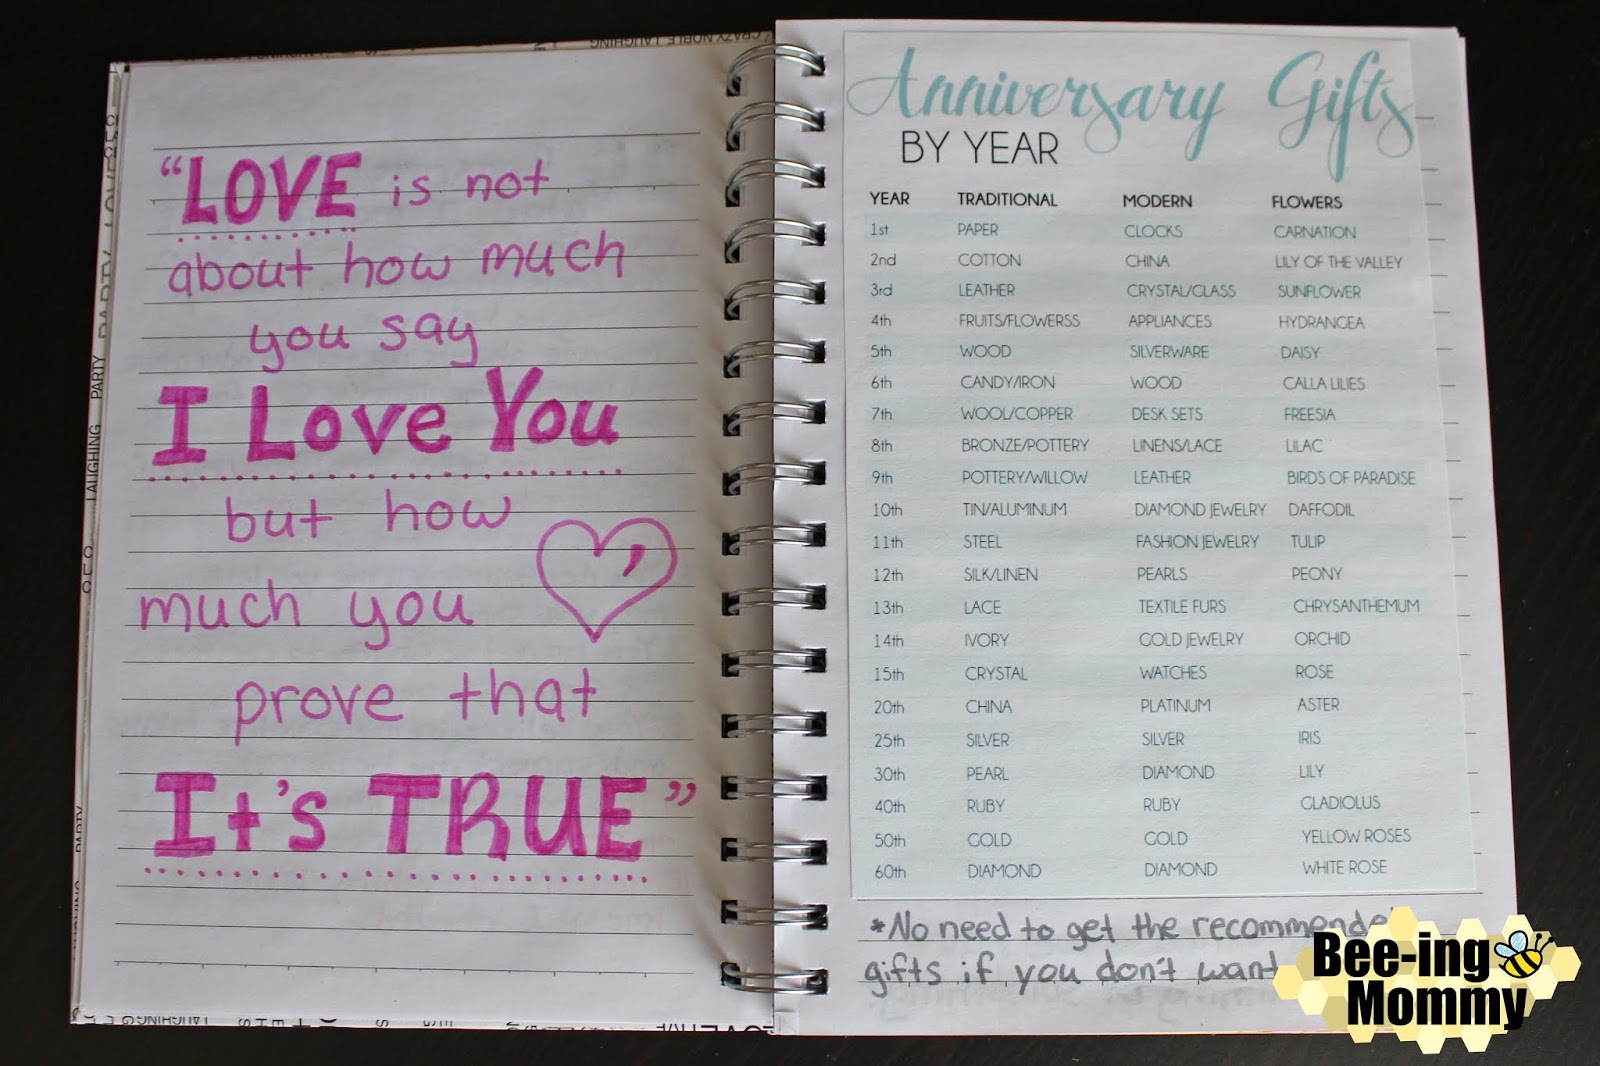 "LOVE is not
about how much
you say
I Love You
but how
much you
prove that
It's TRUE"
Anniversary Gifts
BY YEAR
YEAR TRADITIONAL MODERN FLOWERS
1st PAPER CLOCKS CARNATION
2nd COTTON CHINA LILY OF THE VALLEY
3rd LEATHER CRYSTAL/GLASS SUNFLOWER
4th FRUITS/FLOWERSS APPLIANCES HYDRANGEA
5th WOOD SILVERWARE DAISY
6th CANDY/IRON WOOD CALLA LILIES
7th WOOL/COPPER DESK SETS FREESIA
8th BRONZE/POTTERY LINENS/LACE LILAC
9th POTTERY/WILLOW LEATHER BIRDS OF PARADISE
10th TIN/ALUMINUM DIAMOND JEWELRY DAFFODIL
11th STEEL FASHION JEWELRY TULIP
12th SILK/LINEN PEARLS PEONY
13th LACE TEXTILE FURS CHRYSANTHEMUM
14th IVORY GOLD JEWELRY ORCHID
15th CRYSTAL WATCHES ROSE
20th CHINA PLATINUM ASTER
25th SILVER SILVER IRIS
30th PEARL DIAMOND LILY
40th RUBY RUBY GLADIOLUS
50th GOLD GOLD YELLOW ROSES
60th DIAMOND DIAMOND WHITE ROSE
*No need to get the recommende
gifts if you don't want
Bee-ing
Mommy
CRAZY NOBLE LAUGHING
LAUGHING PARTY PARTY